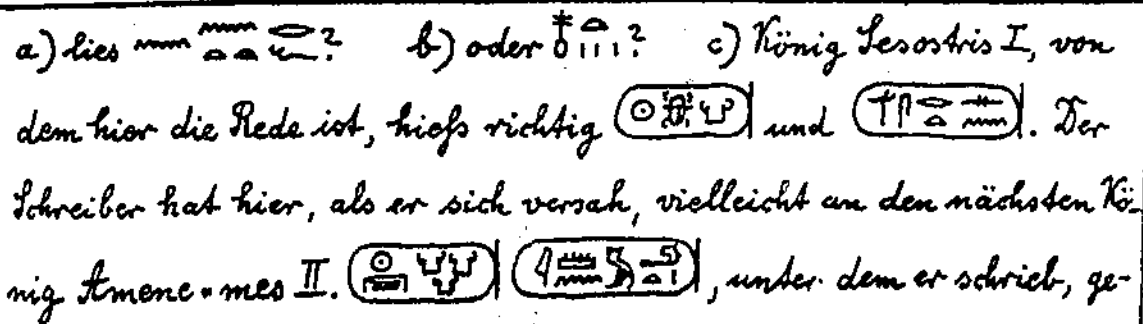 a) lies ? b) oder ? c) König Sesostris I, von
dem hier die Rede ist, hieß richtig und . Der
Schreiber hat hier, als er sich versah, vielleicht an den nächsten Kö-
nig Amene=mes II. , unter dem er schrieb, ge-